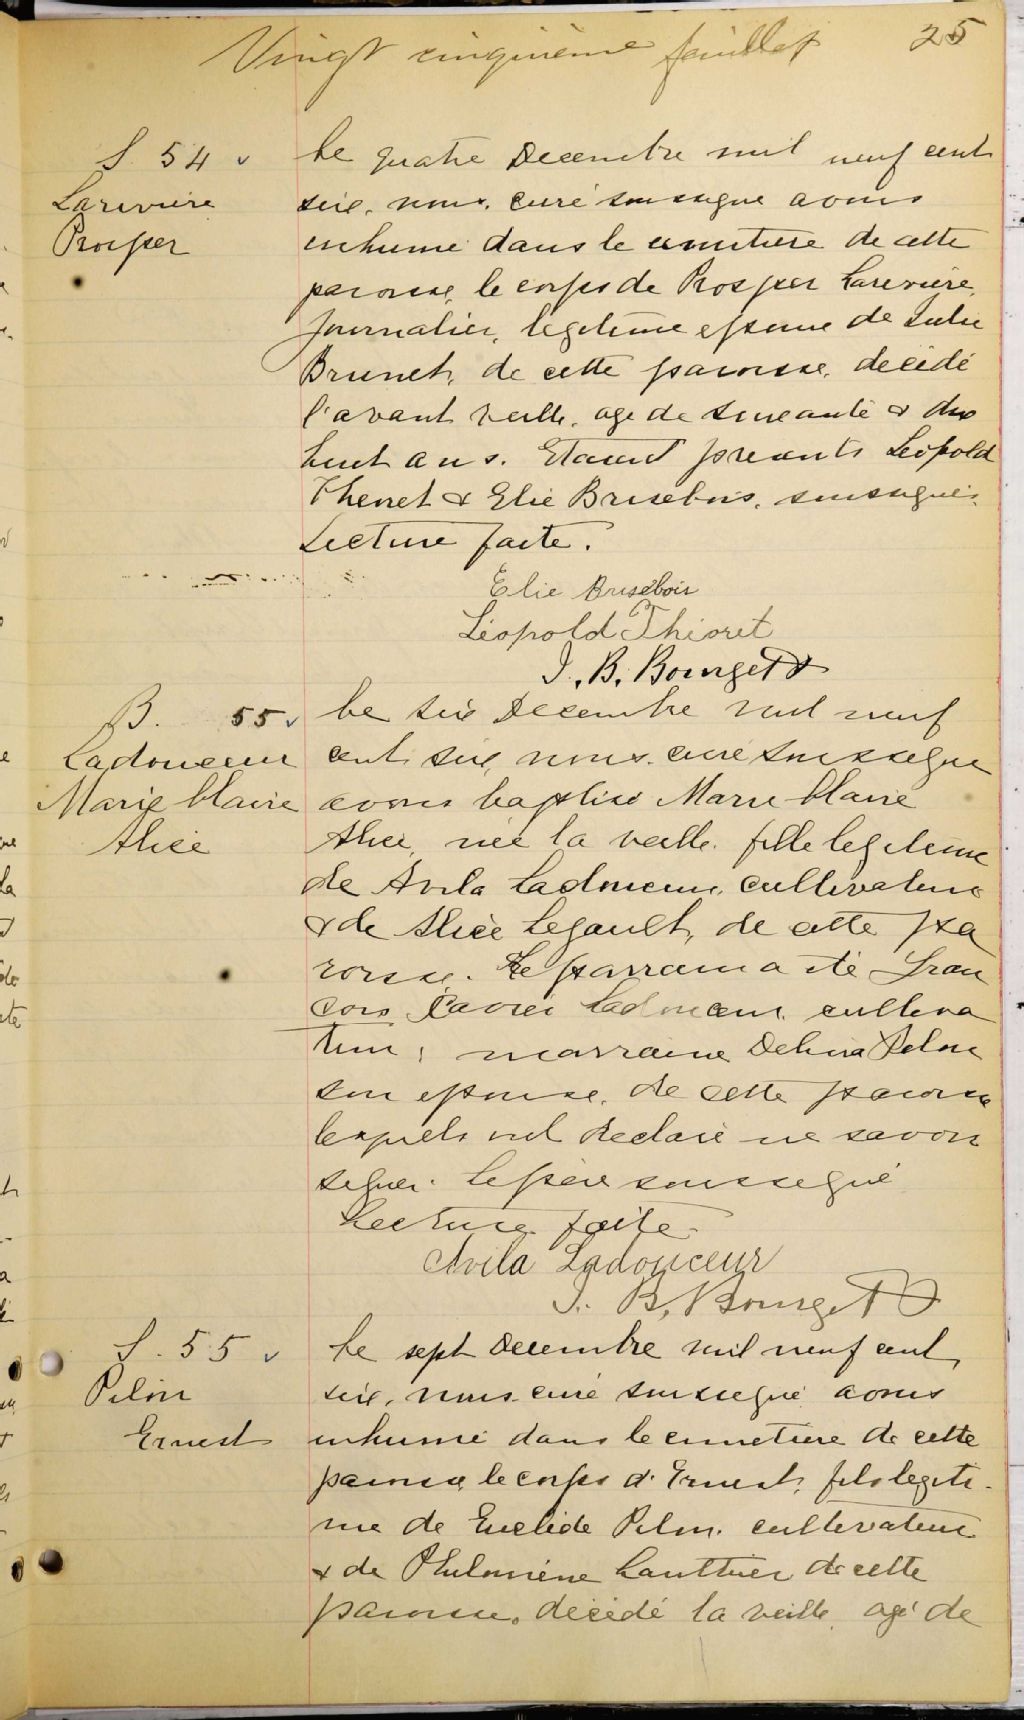 Vingt cinquième feuillet 25
S. 54
Larivière
Prosper
Le quatre Decembre mil neuf cent
six, nous, curé soussigné avons
inhumé dans le cimetière de cette
paroisse, le corps de Prosper Larivière,
journalier, légitime époux de Julie
Brunet, de cette paroisse, décédé
l'avant veille, agé de soixante & dix
huit ans. Etaient présents Léopold
Theoret & Elie Brisebois, soussignés.
Lecture faite.
Elie Brisébois
Léopold Théoret
J. B. Bourget
B. 55
Ladouceur
Marie Claire
Alice
Le six Decembre mil neuf
cent six, nous, curé soussigné
avons baptisé Marie Claire
Alice, née la veille, fille légitime
de Avila Ladouceur, cultivateur
& de Alice Legault, de cette pa
roisse. Le parrain a été Fran
cois Xavier Ladouceur, cultiva
teur; marraine Delima Pilon
son épouse, de cette paroisse
lesquels ont déclaré ne savoir
signer. Le père soussigné
Lecture faite.
Avila Ladouceur
J. B. Bourget
S. 55
Pilon
Ernest
Le sept Decembre mil neuf cent
six, nous, curé soussigné avons
inhumé dans le cimetière de cette
paroisse, le corps d'Ernest, fils légiti-
me de Euclide Pilon, cultivateur
& de Philomène Lauthier de cette
paroisse, décédé la veille, agé de